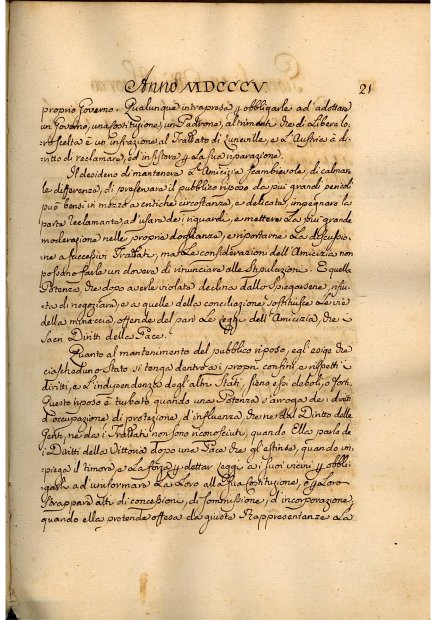 Anno MDCCCV. 21
proprio Governo. Qualunque intrapresa p obbligarle ad adottare
un Governo, una Costituzione, un Padrone, altrimenti che di Libera lo:
ro scelta è un infrazione al Trattato di Luneville, e L'Austria à di:
ritto di reclamare, ed insistere p la sua riparazione.
Il desiderio di mantenere L'Amicizia scambievole, di calmar:
le differenze, di preservare il pubblico riposo da più grandi pericoli
può bensì in mezzo a critiche circostanze, e delicate, impegnare la
parte reclamante, ad usare de' riguardi, e mettere La più grande
moderazione nelle proprie doglianze, e riportarne La discussio:
ne a successivi Trattati, ma Le considerazioni dell'Amicizia non
possono farle un dovere di rinunciare alle Stipulazioni. E quella
Potenza, che dopo averle violate declina dallo Spiegarsene, rifiu:
ta di negoziare, e a quelle della conciliazione sostituisce Le vie
della minaccia, offende del pari Le Leggi dell'Amicizia, che i
Sacri Diritti della Pace.
Quanto al mantenimento del pubblico riposo, egli esige che
ciascheduno Stato si tenga dentro a i proprj confini, e rispetti i
diritti, e L'independenza degli altri Stati, sieno essi deboli, o forti.
Questo riposo è turbato quando una Potenza s'arroga de i diritti
d'occupazione, di protezione, d'influenza che ne dal Diritto delle
Genti, ne da i Trattati non sono riconosciuti, quando Ella parla de
i Diritti della Vittoria dopo una Pace che gl'estinse, quando im:
piega il timore, e La forza p dettar Leggi a i suoi vicini p obbli:
garli ad uniformare La Loro alla sua Costituzione, o p Loro
strappare atti di concessioni, di sommissione, d'incorporazione,
quando ella pretende offesa da giuste Rappresentanze a La